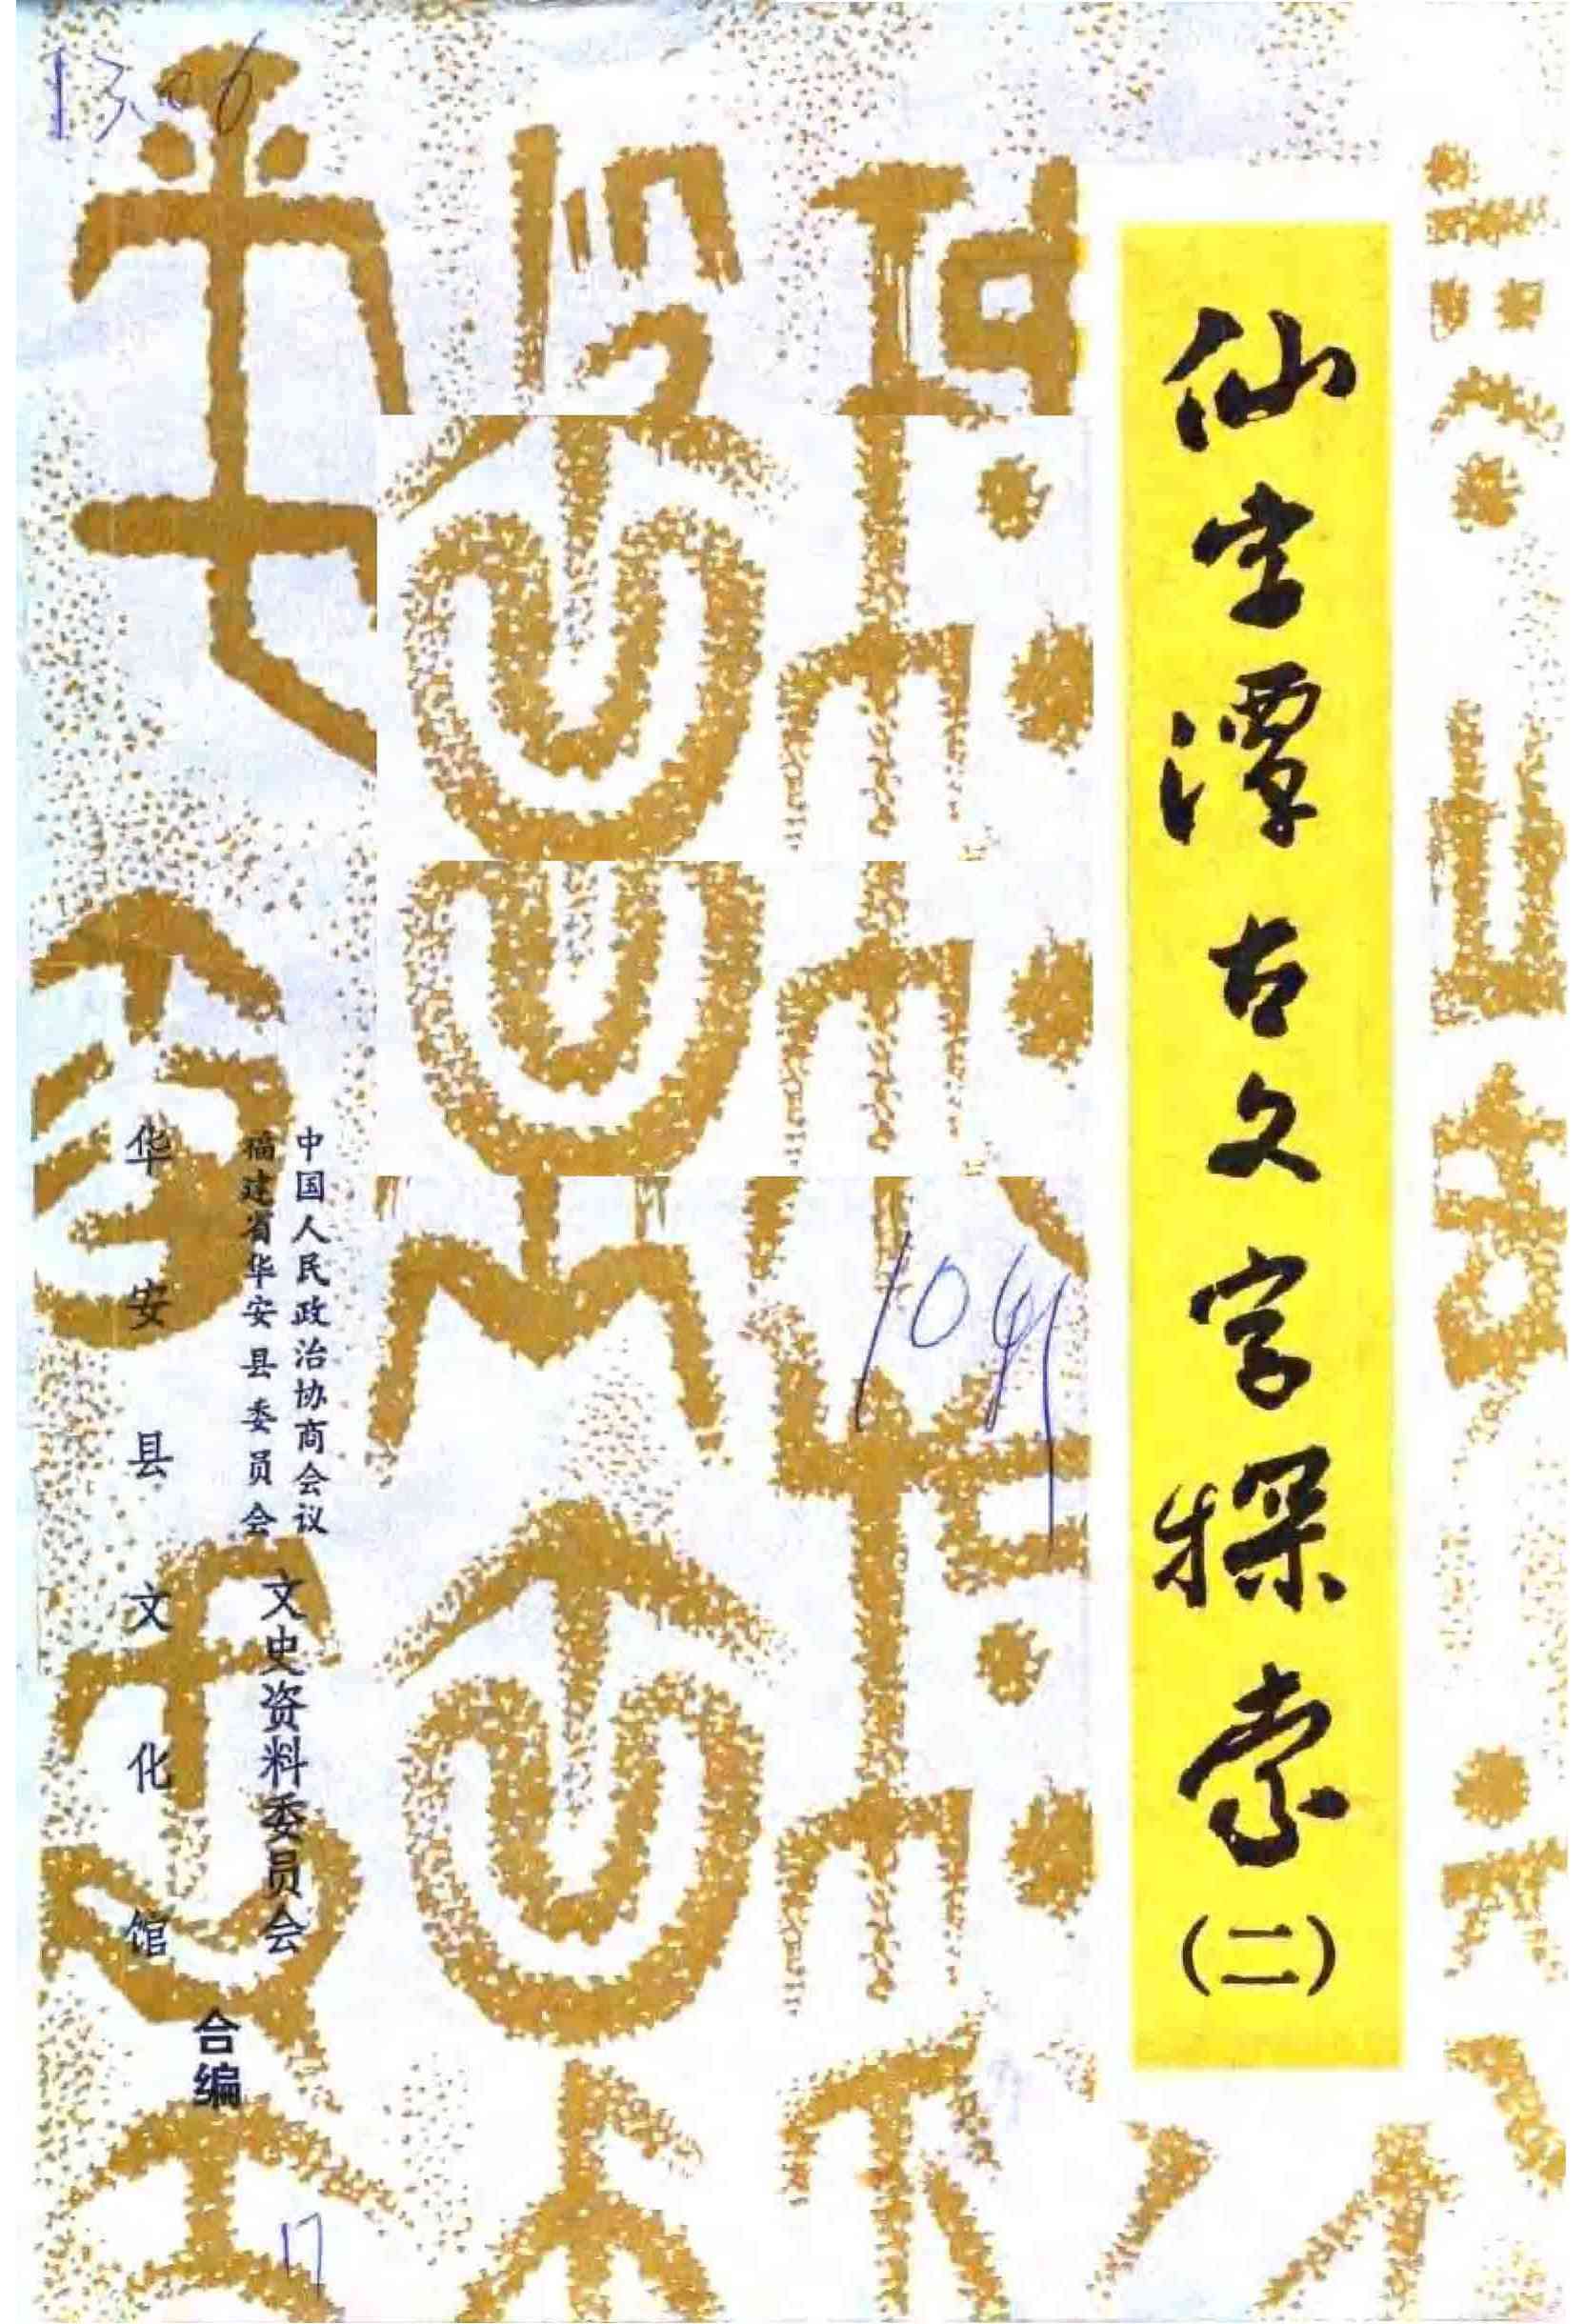 仙字潭古文字探索
(二)
中国人民政治协商会议
福建省华安县委员会
文史资料委员会
华安县文化馆
合编
13.06
1041
17